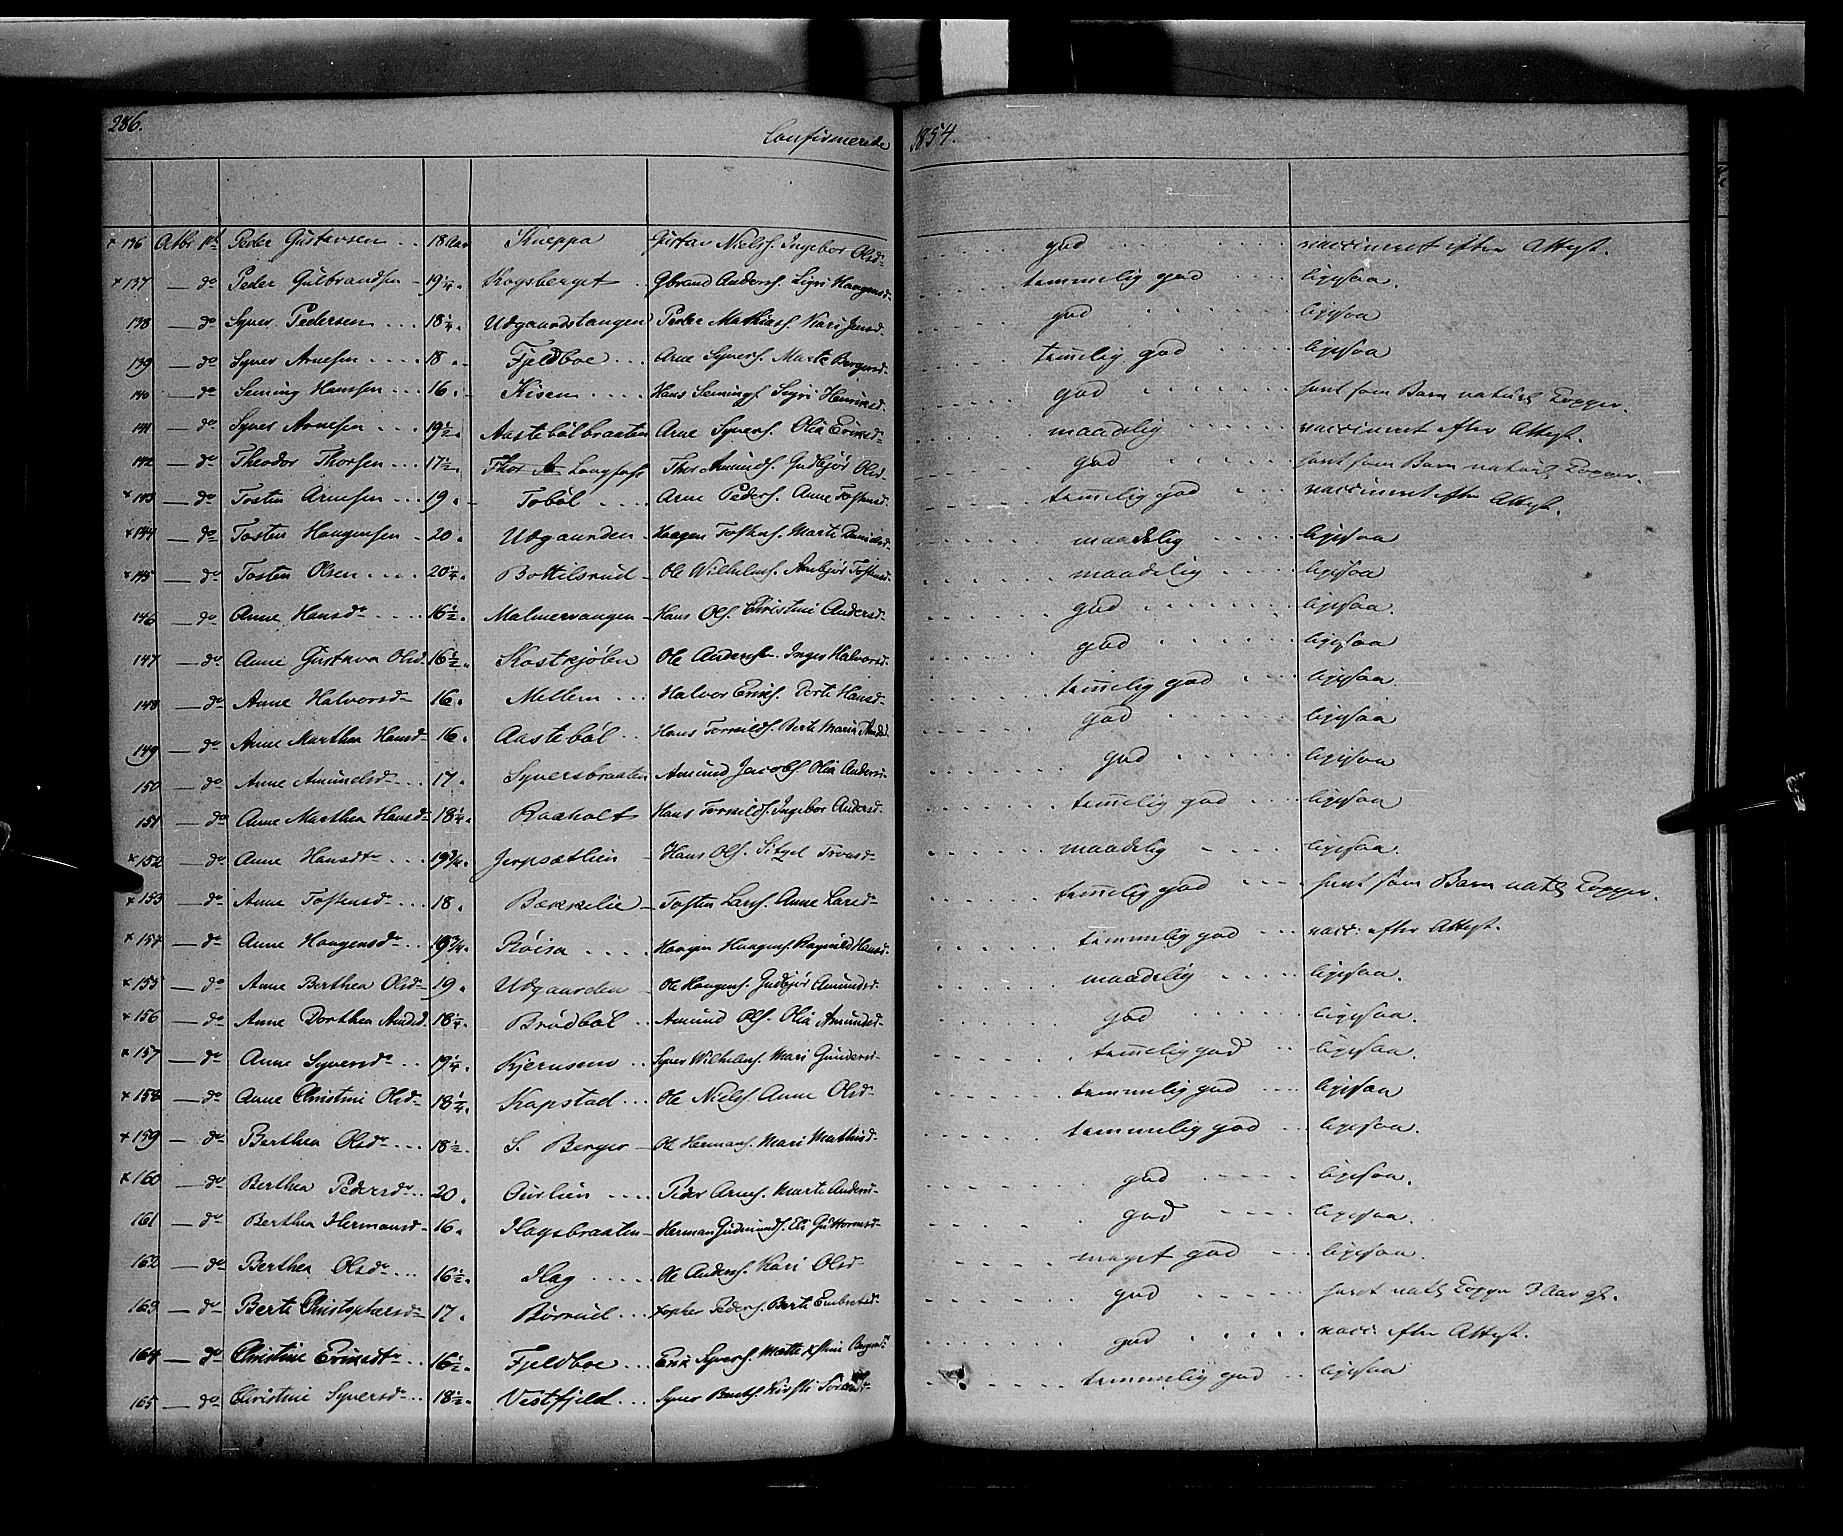 286.
Confirmerede 1854.
× 136 Octbr 1st Peder Gustavsen .. 18 Aar Kneppa Gustav Niels. Ingebor Olsd. god vaccineret efter Attest.
× 137 — do Peder Gulbrandsen – 19 1/4. Kogsberget . Gbrand Anders. Sigri Haagensd. temmelig god ligesaa.
138 — do Syver Pedersen ... 18 1/4. Udgaardstangen Peder Mathias. Kari Jensd. god ligesaa
139 — do Syver Arnesen .... 18 .. Fjeldboe ... Arne Syvers. Marte Bergersd. temelig god ligesaa
140 — do Seming Hansen ... 16 . Kisen .... Hans Semings. Sigri Henriksd. god havt som Barn naturl Kopper.
141 — do Syver Arnesen ... 19 1/2. Aastebölbraaten Arne Syvers. Olia Ericksd. maadelig vaccineret efter Attest.
142 — do Theodor Thorsen ... 17 1/2. Thor Amunds. Gudbjör Olsd. god havt som Barn naturl Kopper.
× 143 — do Tosten Arnesen ... 19 . Toböl .... Arne Peders. Anne Tostensd. temelig god vaccineret efter Attest.
× 144 — do Tosten Haagensen – 20 . Udgaarden – Haagen Tostens. Marte maadelig ligesaa
× 145 — do Tosten Olsen .... 20 1/4. Bottilsrud – Ole Wilhelms. Anbjör Tostensd. maadelig ligesaa
146 — do Anne Hansdr .... 16 1/2. Malmervangen – Hans Ols. Christine Andersd. god ligesaa.
147 — do Anne Gustava Olsd. 16 1/2. Kostkjölen Ole Anders. Inger Halvorsd. god ligesaa.
148 — do Anne Halvorsd – 16 . Mellem ... Halvor Ericks. Dorte Hansd. temelig god ligesaa.
149 — do Anne Marthea Hansd – 16 . Aasteböl .. Hans Tornilds. Berte Maria god ligesaa
150 — do Anne Amundsd – 17 . Syversbraaten Amund Jacobs. Olia Andersd. god ligesaa
151 — do Anne Marthea Hansd 18 1/4. Raaholt Hans Tornilds. Ingebor Andersd. temelig god ligesaa
× 152 — do Anne Hansdr .... 19 3/4. Jerpsætlien – Hans Ols. Sitzel Iversd. maadelig ligesaa.
× 153 — do Anne Tostensd .. 18 . Bakkelie – Tosten Lars. Anne Larsd. temelig god havt som Barn natl Kopper.
× 154 — do Anne Haagensd ... 19 3/4. Röisa .... Haagen Haagens. Ragnild Hansd. temmelig god vacc: efter Attest.
× 155 — do Anne Berthea Olsd 19 . Udgaarden – Ole Haagens. Gudbjör Amundsd. maadelig ligesaa.
× 156 — do Anne Dorthea Amdsd 18 1/4. Brödböl .. Amund Ols. Olia Amundsd. god ligesaa.
× 157 — do Anne Syversd ... 19 1/4. Kjernsmo .. Syver Wilhelms. Mari Gundersd. temelig god ligesaa.
× 158 — do Anne Christine Olsd – 18 1/4. Kapstad ... Ole Niels. Anne Olsd – temmelig god ligesaa
× 159 — do Berthea Olsdr ... 18 1/2. S. Berger – Ole Hermans. Mari Mathisd. temmelig god ligesaa.
× 160 — do Berthea Pedersdr .. 20 . Ourlien .... Peder Arnes. Marte Andersd – god ligesaa.
161 — do Berthea Hermansd – 16 . Ilagsbraaten – Herman Gudmunds. Eli Guttormsd. god ligesaa.
162 — do Berthea Olsdr ... 16 1/2. Ilag ..... Ole Anders. Kari Olsd – meget god ligesaa.
163 — do Berte Christophersd – 17 . Börrud ... Xopher Peders. Berte Embretsd. god havt natl Kopper 3 Aar gl.
164 — do Christine Ericksdr .. 16 1/2. Fjeldboe ... Erik Syvers. Marte Xstine god vacc: efter Attest.
165 — do Christine Syversd ... 18 1/2. Vestfjeld ... Syver Bents. Kirsti temmelig god ligesaa